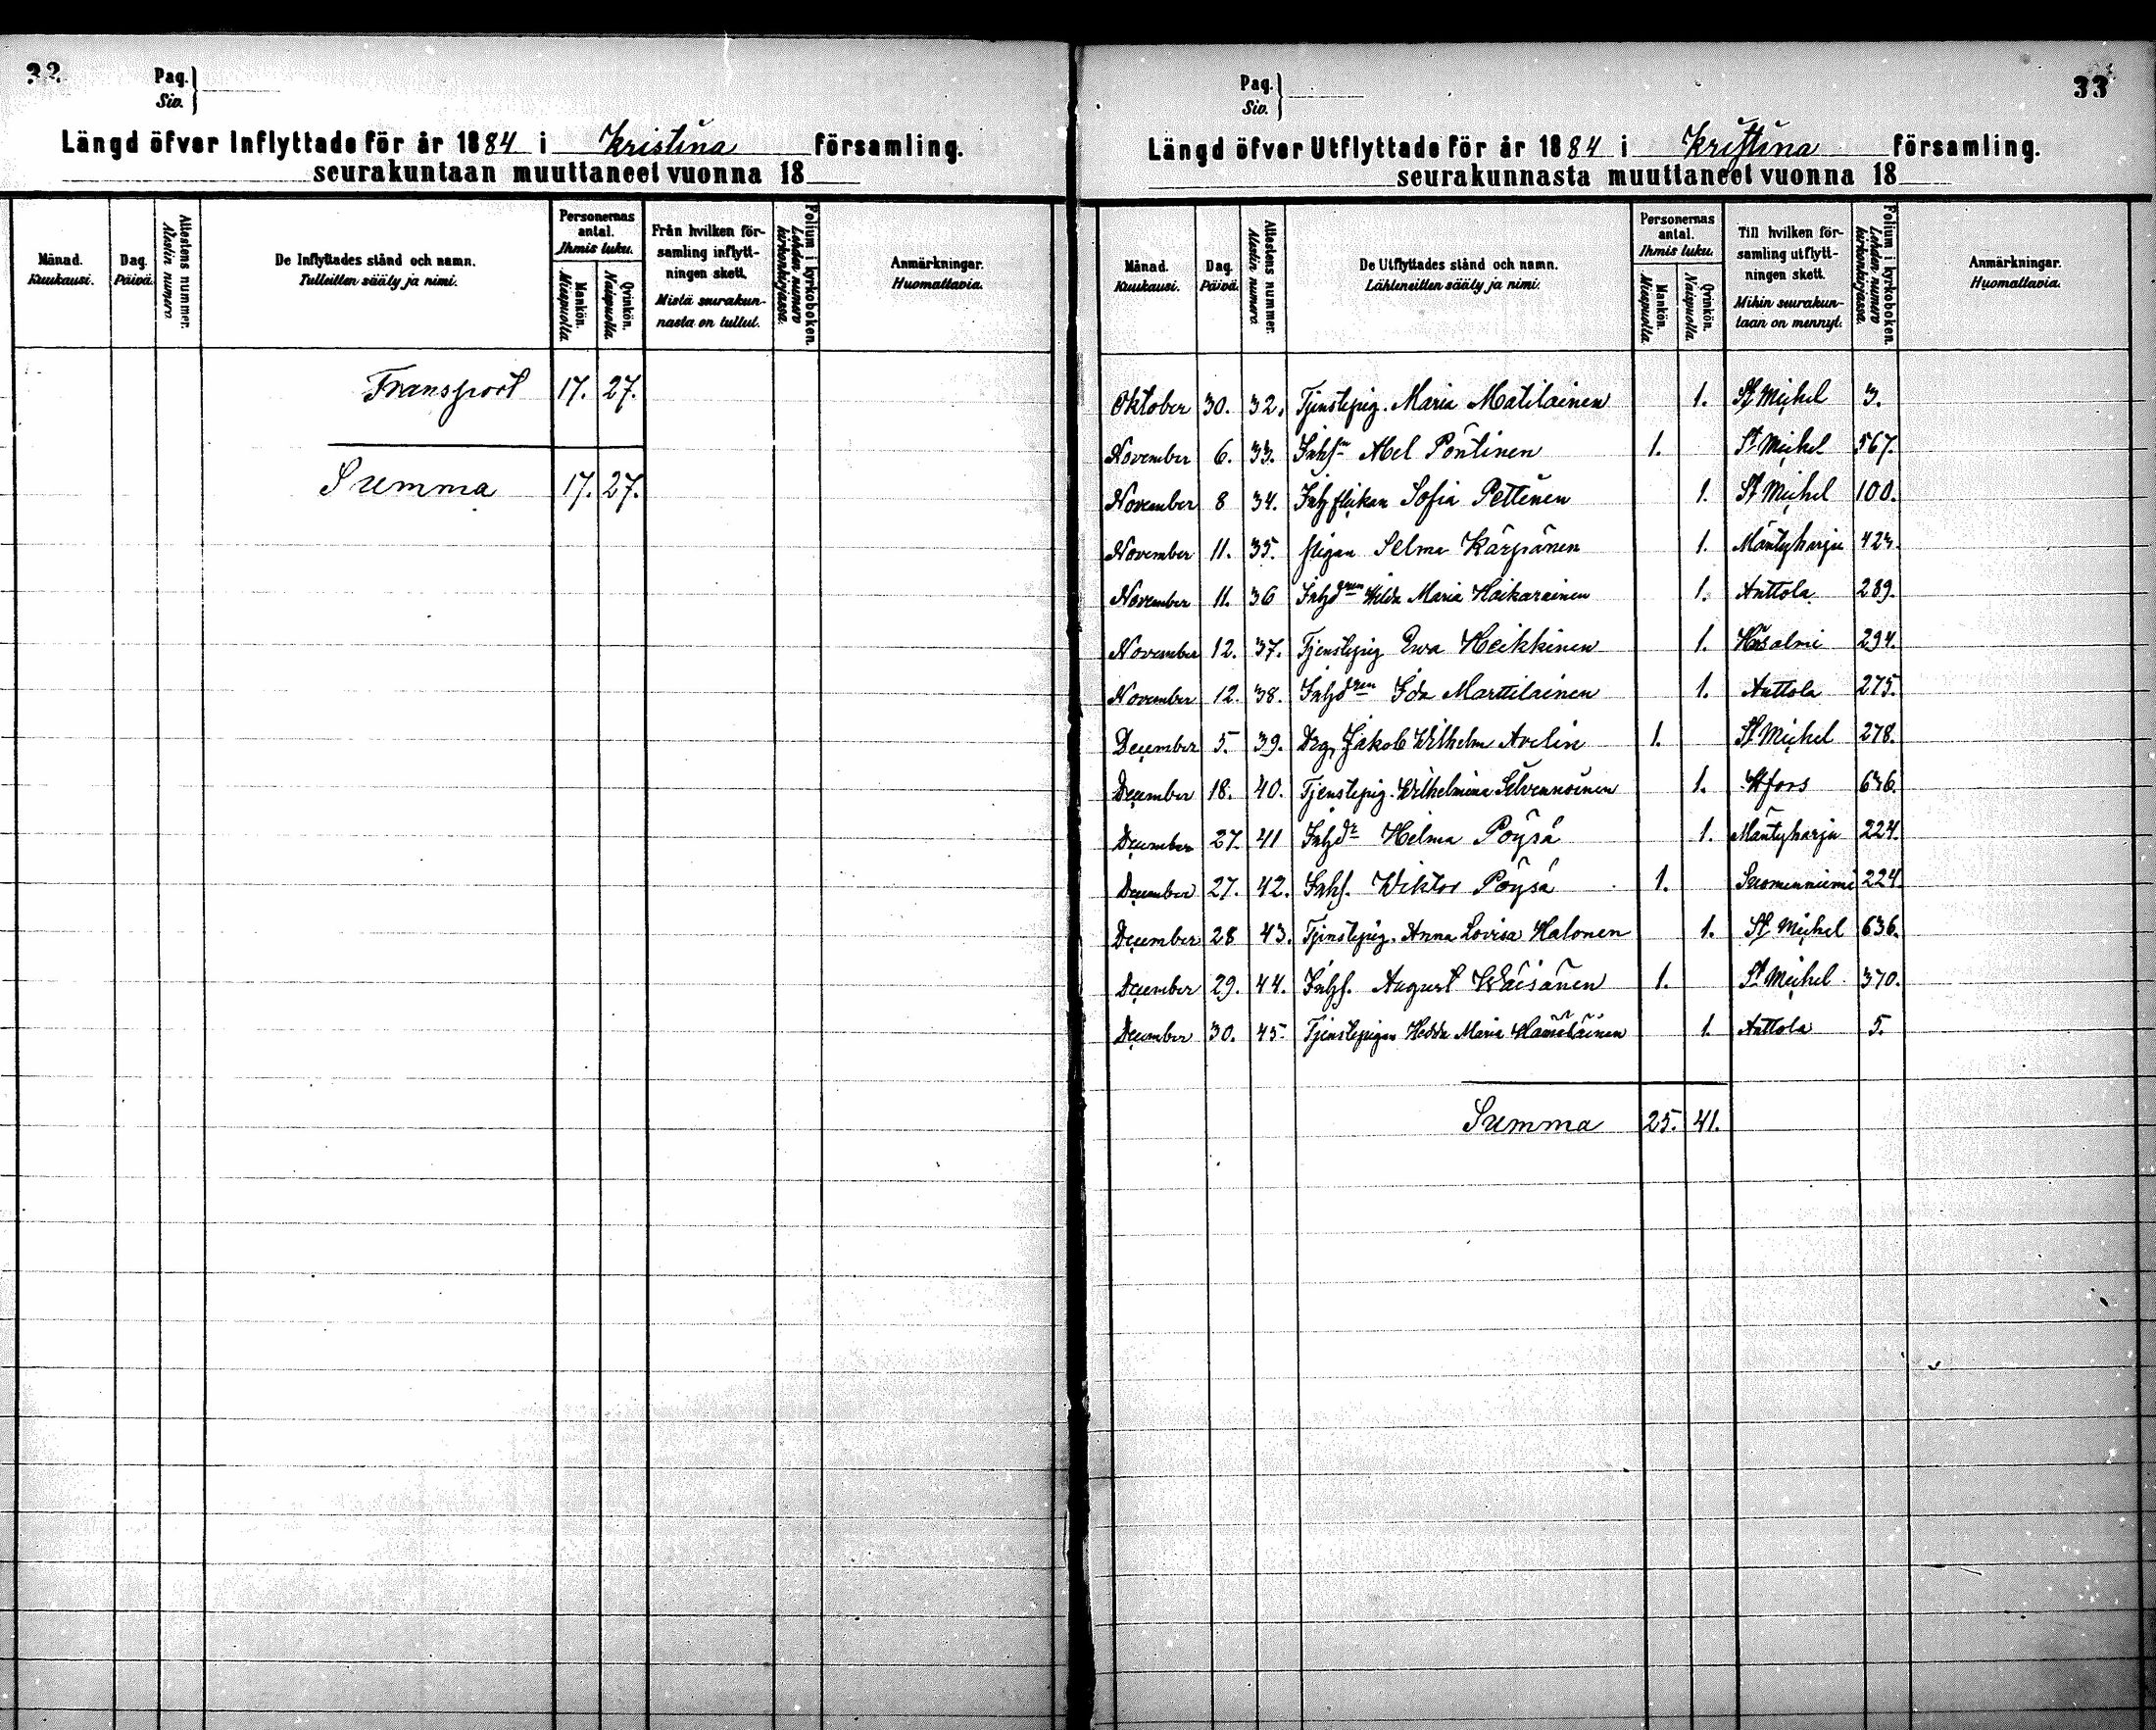 32
Pag.
Siv.
Längd öfver Inflyttade för år 1884 i Kristina församling.
seurakuntaan muuttaneet vuonna 18
Månad.
Kuukausi.
Dag.
Päivä.
Attestens nummer.
Atestin numero.
De Inflyttades stånd och namn.
Tulleitten sääty ja nimi.
Personernas antal.
Ihmis luku.
Mankön.
Miespuolia.
Qvinkön.
Naispuolia.
Från hvilken för-
samling inflytt-
ningen skett.
Mistä seurakun-
nasta on tullut.
Folium i kyrkoboken.
Lehden numero
kirkonkirjassa.
Anmärkningar.
Huomattavia.
Transport 17. 27.
Summa 17. 27.
33
Pag.
Siv.
Längd öfver Utflyttade för år 1884 i Kristina församling.
seurakunnasta muuttaneet vuonna 18
Månad.
Kuukausi.
Dag.
Päivä.
Attestens nummer.
Atestin numero.
De Utflyttades stånd och namn.
Lähteneitten sääty ja nimi.
Personernas antal.
Ihmis luku.
Mankön.
Miespuolia.
Qvinkön.
Naispuolia.
Till hvilken för-
samling utflytt-
ningen skett.
Mihin seurakun-
taan on mennyt.
Folium i kyrkoboken.
Lehden numero
kirkonkirjassa.
Anmärkningar.
Huomattavia.
Oktober 30. 32. Tjenstepig. Maria Matilainen 1. St Michel 3.
November 6. 33. Inhsn Abel Pöntinen 1. St Michel 567.
November 8 34. Inh flickan Sofia Pettinen 1. St Michel 100.
November 11. 35. pigan Selma Kärpänen 1. Mäntyharju 423.
November 11. 36 Inhdren Hilda Maria Haikarainen 1. Anttola 289.
November 12. 37. Tjenstepig Ewa Heikkinen 1. 294.
November 12. 38. Inhdren Ida Marttilainen 1. Anttola 275.
December 5. 39. Drg. Jakob Wilhelm Avelin 1. St Michel 278.
December 18. 40. Tjenstepig. Wilhelmina Silvennoinen 1. Hfors 636.
December 27. 41 Inhdr Helma Pöysä 1. Mäntyharju 224.
December 27. 42. Inhs. Wiktor Pöysä 1. Suomenniemi 224.
December 28 43. Tjenstepig. Anna Lovisa Halonen 1. St Michel 636.
December 29. 44. Inhs. August Wäisänen 1. St Michel 370.
December 30. 45. Tjenstepigan Hedda Maria Hämäläinen 1. Anttola 5.
Summa 25. 41.